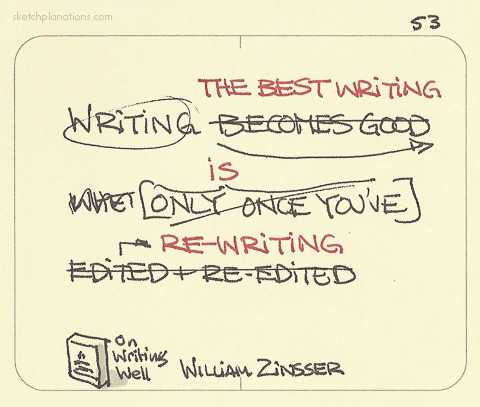 sketchplanations.com
53
THE BEST WRITING
WRITING BECOMES GOOD
IS
WHEN [ONLY ONCE YOU'VE]
RE-WRITING
EDITED + RE-EDITED
On
Writing
Well
WILLIAM ZINSSER